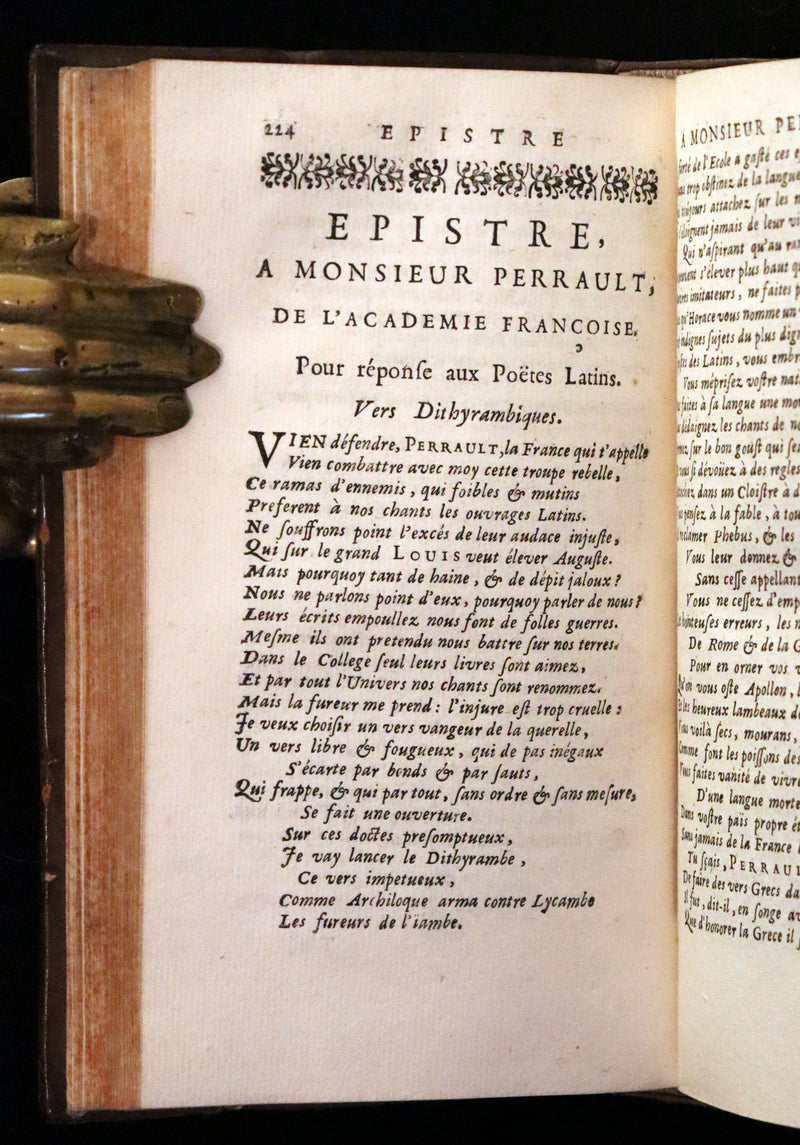 224 EPISTRE
EPISTRE,
A MONSIEUR PERRAULT,
DE L'ACADEMIE FRANÇOISE.
Pour réponſe aux Poëtes Latins.
Vers Dithyrambiques.
VIEN défendre, PERRAULT, la France qui t'appelle
Vien combattre avec moy cette troupe rebelle,
Ce ramas d'ennemis, qui foibles & mutins
Preferent à nos chants les ouvrages Latins.
Ne ſouffrons point l'excés de leur audace injuſte,
Qui ſur le grand LOUIS veut élever Auguſte.
Mais pourquoy tant de haine, & de dépit jaloux?
Nous ne parlons point d'eux, pourquoy parler de nous?
Leurs écrits empoullez nous font de folles guerres.
Meſme ils ont pretendu nous battre ſur nos terres.
Dans le College ſeul leurs livres ſont aimez,
Et par tout l'Univers nos chants ſont renommez.
Mais la fureur me prend: l'injure eſt trop cruelle:
Je veux choiſir un vers vangeur de la querelle,
Un vers libre & fougueux, qui de pas inégaux
S'écarte par bonds & par ſauts,
Qui frappe, & qui par tout, ſans ordre & ſans meſure,
Se fait une ouverture.
Sur ces doctes preſomptueux,
Je vay lancer le Dithyrambe,
Ce vers impetueux,
Comme Archiloque arma contre Lycambe
Les fureurs de l'ïambe.
A MONSIEUR
de l'Ecole a gaſté ces
trop obſtinez de la langue
toûjours attachez ſur les
jamais de leur
Qui n'aſpirant qu'au
s'élever plus haut
imitateurs, ne faites
qu'Horace vous nomme un
indignes ſujets du plus
des Latins, vous
Vous mépriſez voſtre
faites à ſa langue une
dédaignez les chants de
ſur le bon gouſt qui
ſi dévoüez à des regles
dans un Cloiſtre à
penſez à la fable, à
Phebus, & les
Vous leur donnez &
Sans ceſſe appellant
Vous ne ceſſez
honteuſes erreurs, les
De Rome & de la
Pour en orner vos
Qu'on vous oſte Apollon,
les heureux lambeaux
Vous voilà ſecs, mourans,
Comme ſont les poiſſons des
Vous faites vanité de vivre
D'une langue morte
Dans voſtre pais propre
Sans jamais de la France
Tu ſçais,
De faire des vers Grecs
Il fut, dit-il, en ſonge
Que d'honorer la Grece il